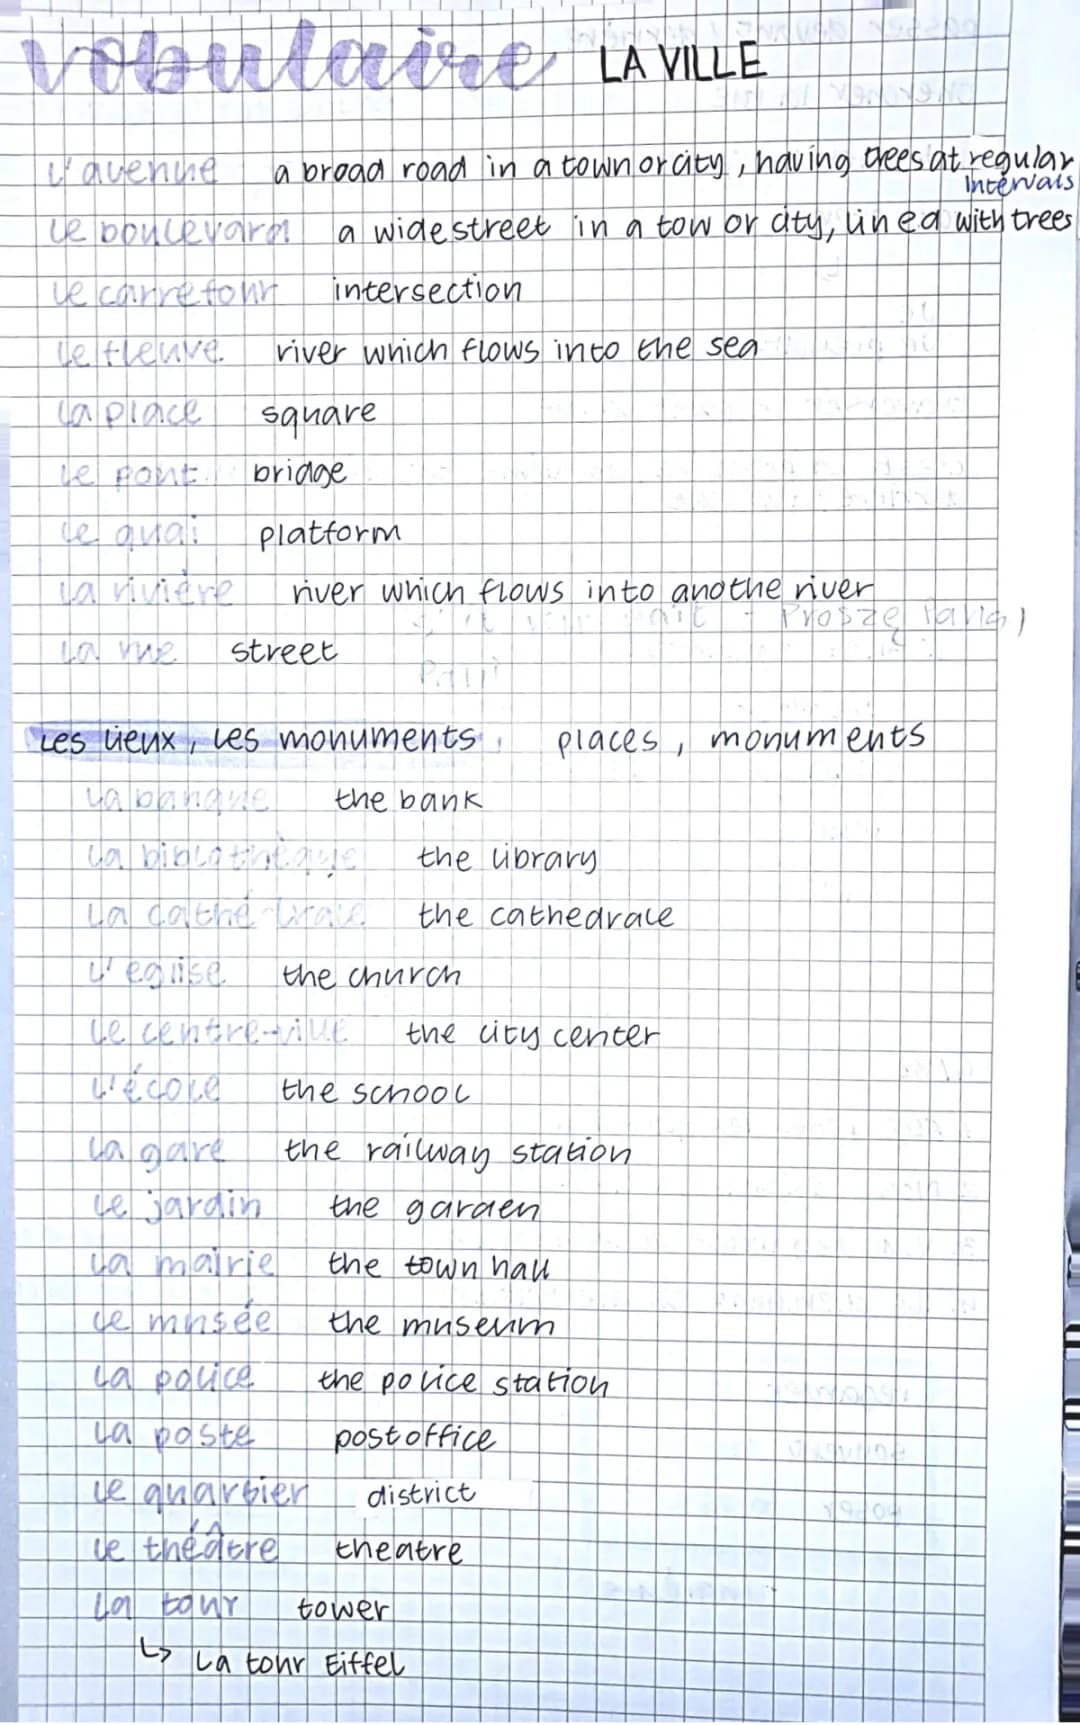 vobulaire LA VILLE
l'avenue a broad road in a town or city, having trees at regular
intervals
le boulevard a wide street in a tow or city, lined with trees
le carrefour intersection
le fleuve river which flows into the sea
la place square
le pont bridge
le quai platform
la rivière river which flows into anothe river
la rue street
Les lieux, les monuments places, monuments
la banque the bank
la biblothèque the library
la cathédrale the cathedrale
l'eglise the church
le centre-ville the city center
l'école the school
la gare the railway station
le jardin the garden
la mairie the town hall
le musée the museum
la police the police station
la poste post office
le quartier district
le théâtre theatre
la tour tower
↳ La tour Eiffel